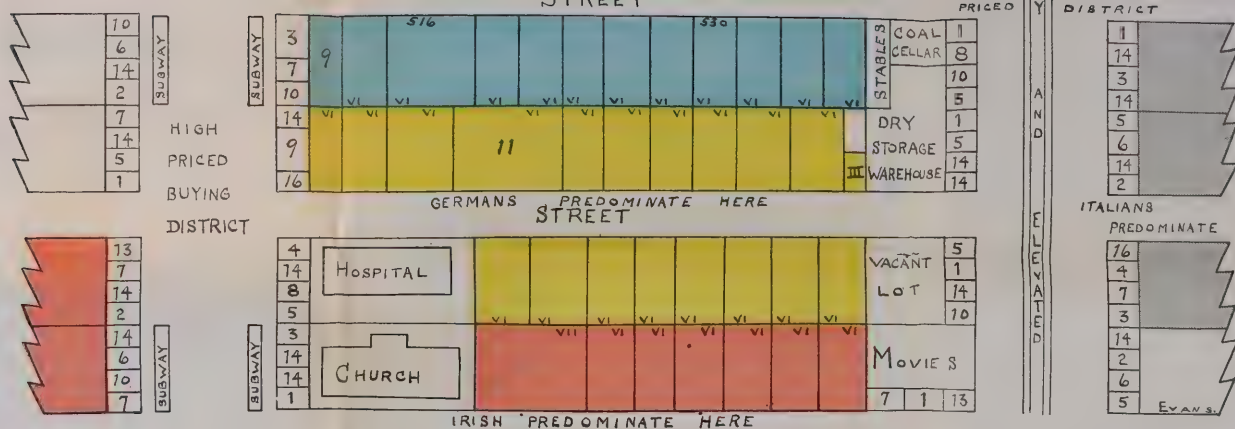 STREET
PRICED
DISTRICT
10
6
14
2
7
14
5
1
SUBWAY
SUBWAY
HIGH
PRICED
BUYING
DISTRICT
3
7
10
14
9
16
9
516
530
VI VI VI VI VI VI VI VI VI VI VI
VI VI VI VI VI VI VI VI VI
11
III
STABLES
COAL
CELLAR
DRY
STORAGE
WAREHOUSE
1
8
10
3
1
5
14
14
GERMANS PREDOMINATE HERE
STREET
Y AND ELEVATED
1
14
3
14
5
6
14
2
ITALIANS
PREDOMINATE
13
7
14
2
14
6
10
7
SUBWAY
SUBWAY
4
14
8
5
3
14
14
1
HOSPITAL
CHURCH
VI VI VI VI VI VI VI VI
VII VI VI VI VI VI VI
VACANT
LOT
5
1
14
10
MOVIES
7 1 13
IRISH PREDOMINATE HERE
16
4
7
3
14
2
6
5
EVANS.